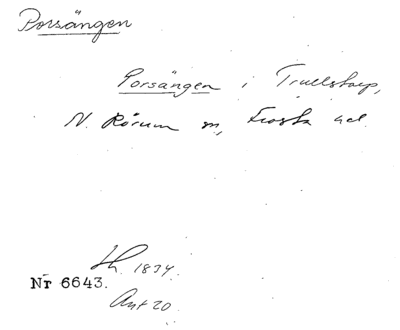 Porsängen
Porsängen i Trullstorp,
N. Rörum sn, Frosta hd.
Lh. 1834.
Nr 6643.
Ant 20